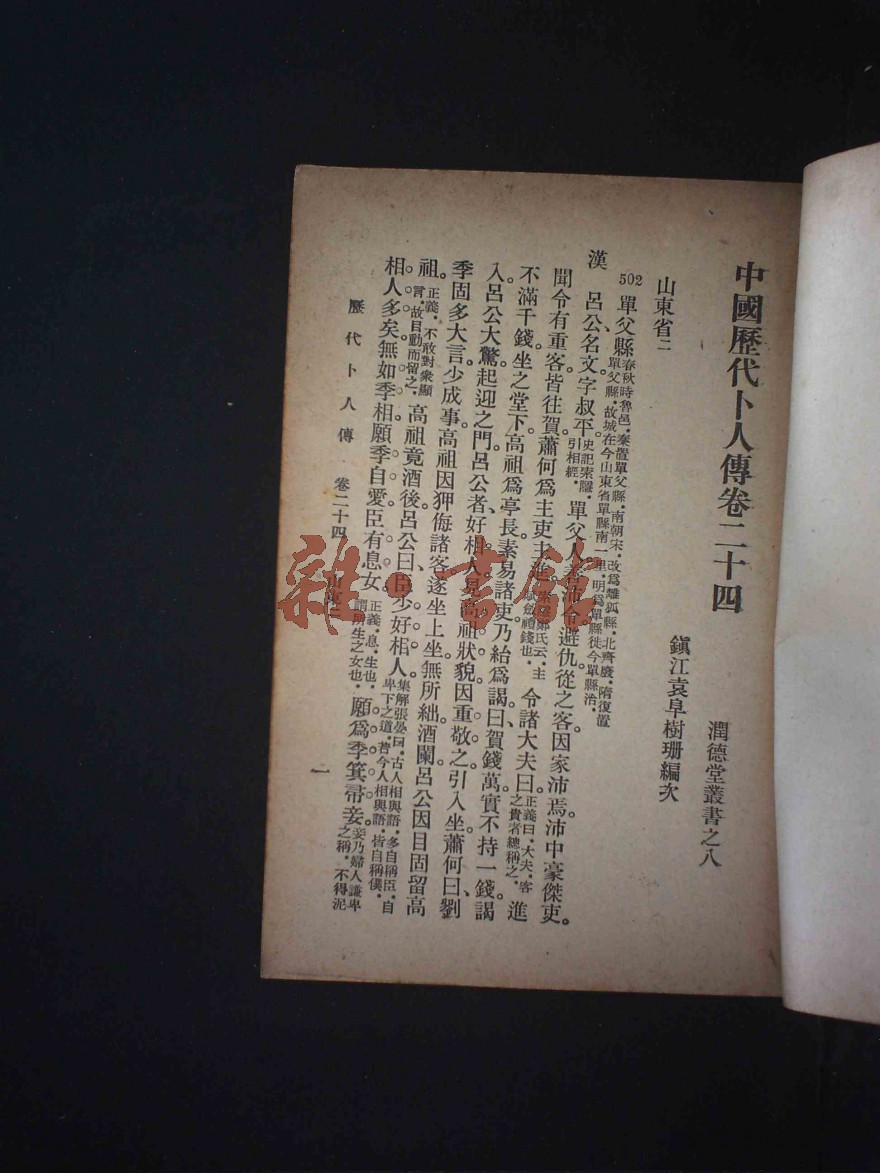 中國歷代卜人傳卷二十四
潤德堂叢書之八
鎮江袁阜樹珊編次
山東省二
502 單父縣春秋時魯邑,秦置單父縣,南朝宋,改爲離狐縣,北齊廢,隋復置單父縣,故城在今山東省單縣南一里,明爲單縣徙今單縣治,
漢 呂公、名文字叔平。史記索隱,引相經,單父人善沛令避仇從之客因家沛焉。沛中豪傑吏。
聞令有重客皆往賀蕭何爲主吏主進。鄭氏云,主賦斂禮錢也,令諸大夫曰。正義曰,大夫,客之貴者總稱之,進
不滿千錢坐之堂下。高祖爲亭長素易諸吏乃紿爲謁曰、賀錢萬實不持一錢。謁
入。呂公大驚起迎之門。呂公者、好相人。見高祖狀貌因重敬之。引入坐。蕭何曰、劉
季固多大言少成事。高祖因狎侮諸客。遂坐上坐無所絀。酒闌。呂公因目固留高
祖。正義,不敢對衆顯言,故目動而留之,高祖竟酒後呂公曰。臣少好相人。集解張晏曰,古人相與語,多自稱臣,自卑下之道,昔今人相與語,皆自稱僕,
相人多矣。無如季相。願季自愛。臣有息女。正義,息,生也,謂所生之女也,願爲季箕帚妾。妾乃婦人謙卑之稱,不得泥
歷代卜人傳 卷二十四 山東二 一
雜·書館